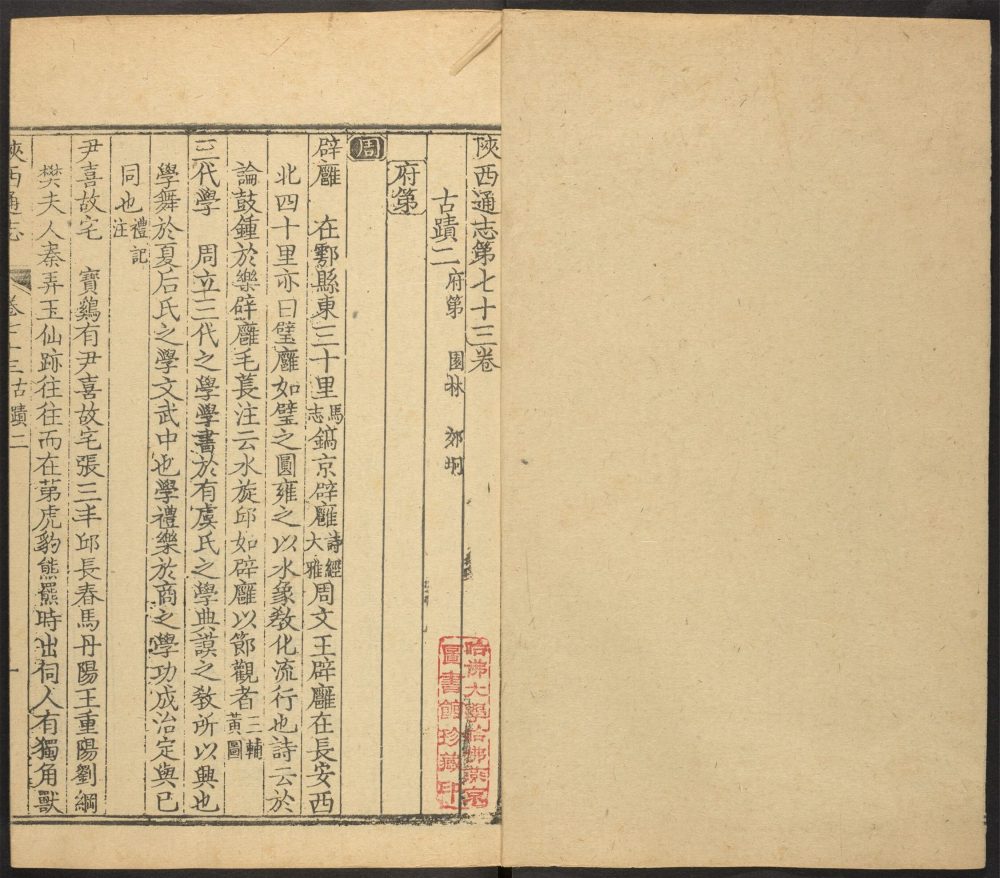 陝西通志第七十三卷
古蹟二 府第 園林 郊坰
府第
周
辟廱 在鄠縣東三十里馬志鎬京辟廱詩經大雅周文王辟廱在長安西
北四十里亦曰璧廱如璧之圓雍之以水象教化流行也詩云於
論鼓鍾於樂辟廱毛萇注云水旋邱如辟廱以節觀者三輔黃圖
三代學 周立三代之學學書於有虞氏之學典謨之教所以興也
學舞於夏后氏之學文武中也學禮樂於商之學功成治定與已
同也禮記注
尹喜故宅 寶鷄有尹喜故宅張三丰邱長春馬丹陽王重陽劉綱
樊夫人秦弄玉仙跡往往而在第虎豹熊羆時出伺人有獨角獸
陝西通志 卷七十三古蹟二 一
哈佛大學哈佛燕京
圖書館珍藏印